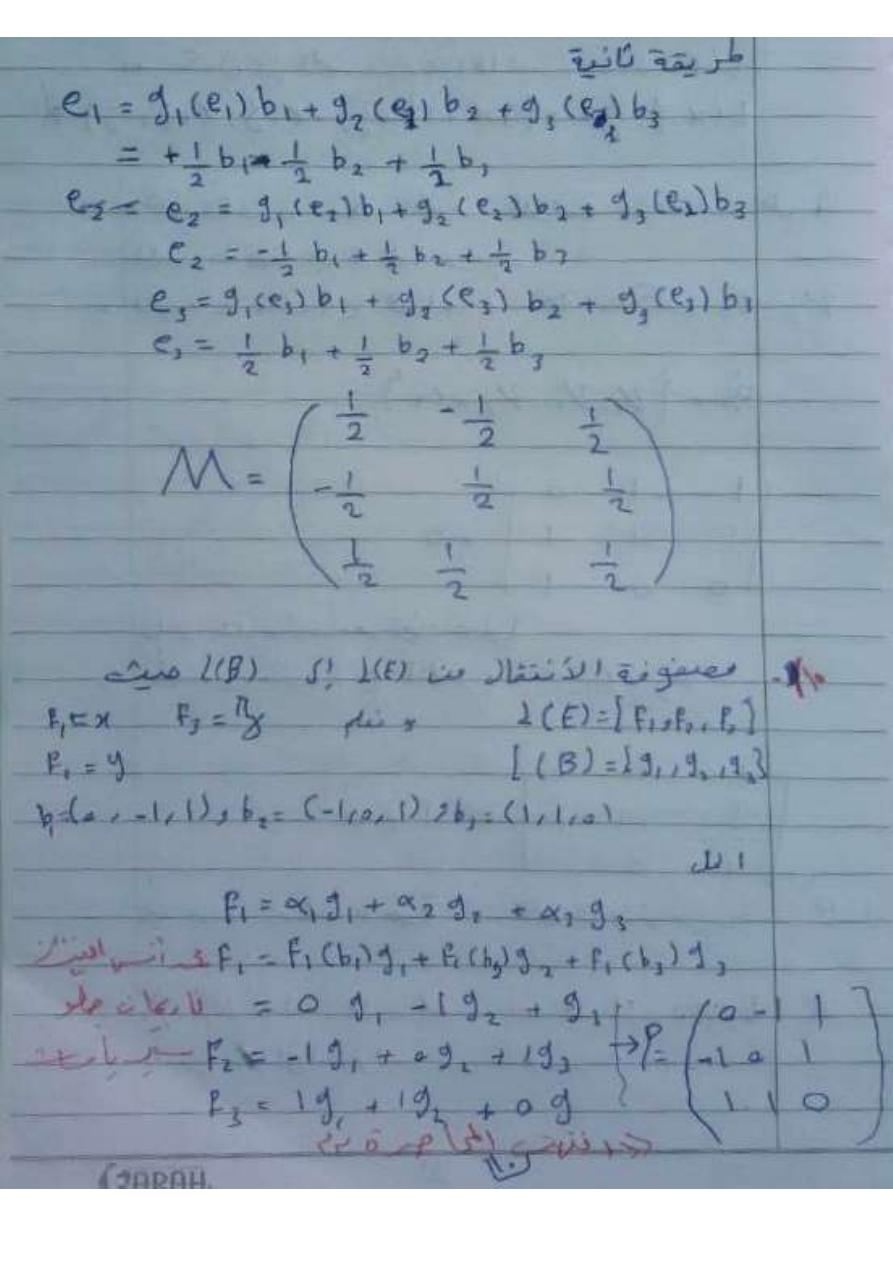 طريقة ثانية
e₁ = g₁(e₁) b₁ + g₂(e₁) b₂ + g₃(e₁) b₃
= +1/2 b₁ - 1/2 b₂ + 1/2 b₃
e₂ = e₂ = g₁(e₂) b₁ + g₂(e₂) b₂ + g₃(e₂) b₃
e₂ = -1/2 b₁ + 1/2 b₂ + 1/2 b₃
e₃ = g₁(e₃) b₁ + g₂(e₃) b₂ + g₃(e₃) b₃
e₃ = 1/2 b₁ + 1/2 b₂ + 1/2 b₃
M = ( 1/2 -1/2 1/2
-1/2 1/2 1/2
1/2 1/2 1/2 )
مصفوفة الأنتقال من L(E) إلى L(B) حيث
L(E) = {F₁, F₂, F₃} F₃ = z F₁ = x
L(B) = {g₁, g₂, g₃} F₂ = y
b₁ = (0, -1, 1), b₂ = (-1, 0, 1), b₃ = (1, 1, 0)
الحل
F₁ = α₁ g₁ + α₂ g₂ + α₃ g₃
F₁ = F₁(b₁) g₁ + F₁(b₂) g₂ + F₁(b₃) g₃
= 0 g₁ - 1 g₂ + g₃
F₂ = -1 g₁ + 0 g₂ + 1 g₃ → P = ( 0 -1 1
-1 0 1
1 1 0 )
F₃ = 1 g₁ + 1 g₂ + 0 g
SARAH